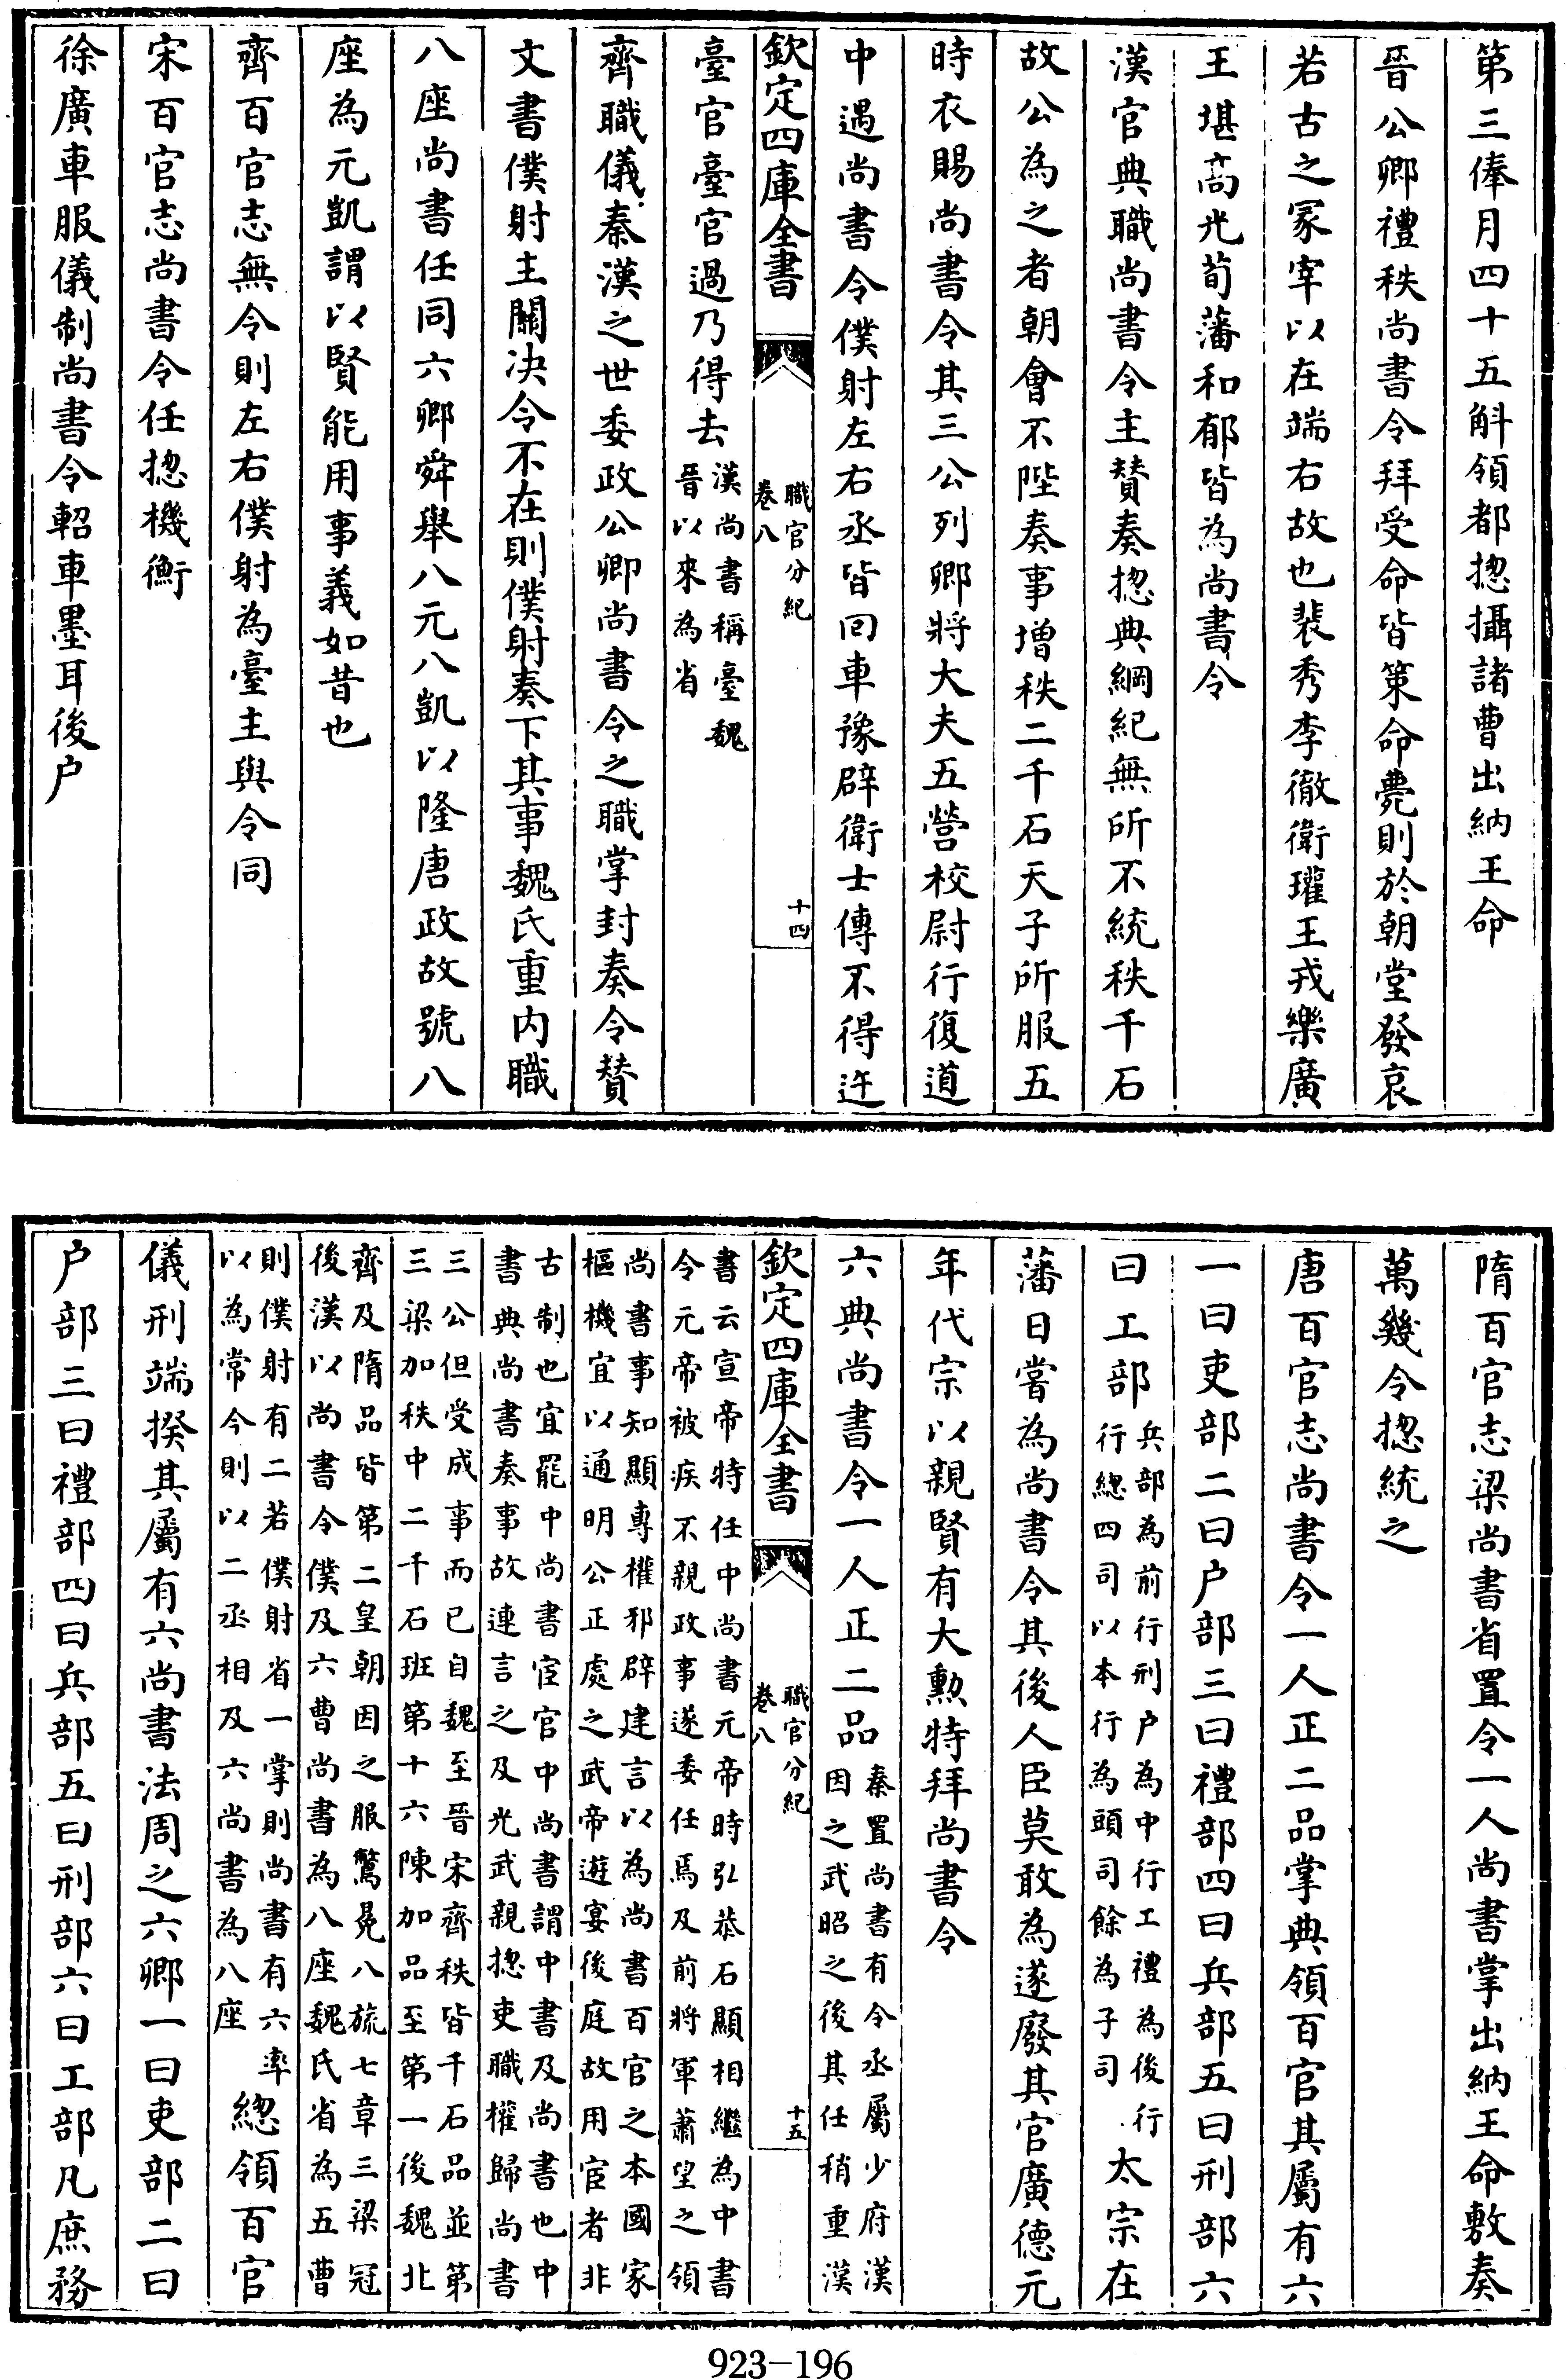 第三俸月四十五斛領都揔攝諸曹出納王命
晉公卿禮秩尚書令拜受命皆策命薨則於朝堂發哀
若古之冢宰以在端右故也裴秀李徹衛瓘王戎樂廣
王堪高光荀藩和郁皆為尚書令
漢官典職尚書令主賛奏揔典綱紀無所不統秩千石
故公為之者朝會不陛奏事增秩二千石天子所服五
時衣賜尚書令其三公列卿將大夫五營校尉行復道
中遇尚書令僕射左右丞皆回車豫辟衛士傳不得迕
欽定四庫全書
職官分紀
卷八
十四
臺官臺官過乃得去漢尚書稱臺魏
晉以來為省
齊職儀秦漢之世委政公卿尚書令之職掌封奏令賛
文書僕射主關决令不在則僕射奏下其事魏氏重内職
八座尚書任同六卿舜舉八元八凱以隆唐政故號八
座為元凱謂以賢能用事義如昔也
齊百官志無令則左右僕射為臺主與令同
宋百官志尚書令任揔機衡
徐廣車服儀制尚書令軺車墨耳後户
隋百官志梁尚書省置令一人尚書掌出納王命敷奏
萬幾令揔統之
唐百官志尚書令一人正二品掌典領百官其屬有六
一曰吏部二曰户部三曰禮部四曰兵部五曰刑部六
曰工部兵部為前行刑户為中行工禮為後行
行總四司以本行為頭司餘為子司太宗在
藩日嘗為尚書令其後人臣莫敢為遂廢其官廣德元
年代宗以親賢有大勲特拜尚書令
六典尚書令一人正二品秦置尚書有令丞屬少府漢
因之武昭之後其任稍重漢
欽定四庫全書
職官分紀
卷八
十五
書云宣帝特任中尚書元帝時弘恭石顯相繼為中書
令元帝被疾不親政事遂委任焉及前將軍蕭望之領
尚書事知顯專權邪辟建言以為尚書百官之本國家
樞機宜以通明公正處之武帝遊宴後庭故用宦者非
古制也宜罷中尚書宦官中尚書謂中書及尚書也中
書典尚書奏事故連言之及光武親揔吏職權歸尚書
三公但受成事而已自魏至晉宋齊秩皆千石品並第
三梁加秩中二千石班第十六陳加品至第一後魏北
齊及隋品皆第二皇朝因之服驚冕八旒七章三梁冠
後漢以尚書令僕及六曹尚書為八座魏氏省為五曹
則僕射有二若僕射省一掌則尚書有六率
以為常今則以二丞相及六尚書為八座總領百官
儀刑端揆其屬有六尚書法周之六卿一曰吏部二曰
户部三曰禮部四曰兵部五曰刑部六曰工部凡庶務
923-196